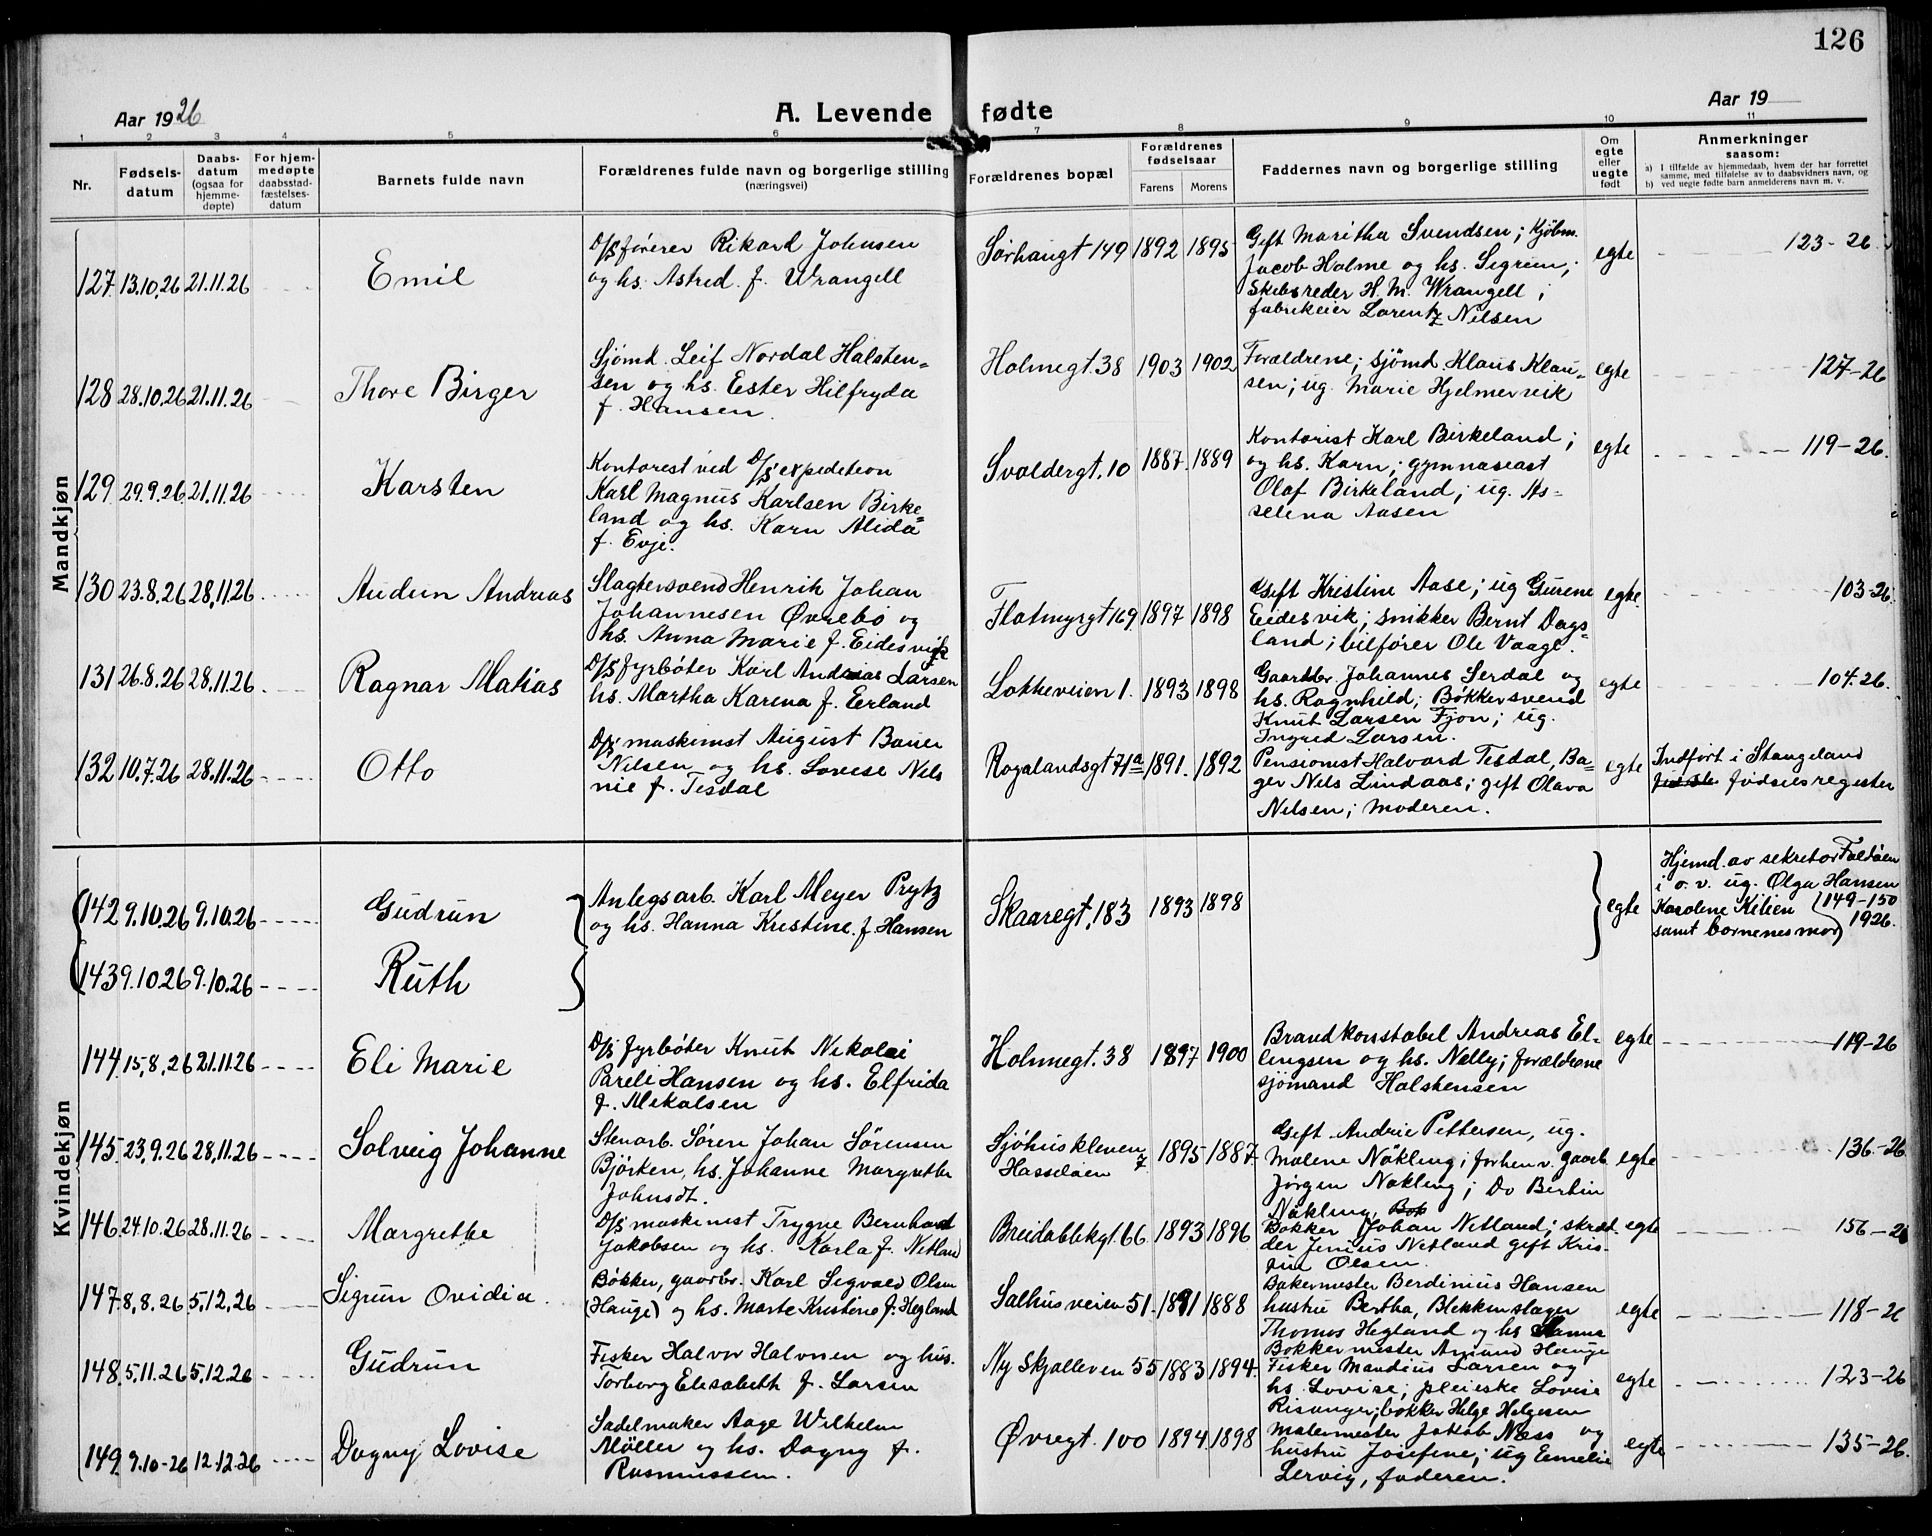 126
Aar 1926
A. Levende fødte
Aar 19
1 2 3 4 5 6 7 8 9 10 11
Nr.
Fødsels-
datum
Daabs-
datum
(ogsaa for
hjemme-
døpte)
For hjem-
medøpte
daabsstad-
fæstelses-
datum
Barnets fulde navn
Forældrenes fulde navn og borgerlige stilling
(næringsvei)
Forældrenes bopæl
Forældrenes
fødselsaar
Farens Morens
Faddernes navn og borgerlige stilling
Om
egte
eller
uegte
født
Anmerkninger
saasom:
a) I tilfælde av hjemmedaab, hvem der har forrettet
samme, med tilføielse av to daabsvidners navn, og
b) ved uegte fødte barn anmelderens navn m. v.
Mandkjøn
127 13.10.26 21.11.26
Emil
D/S fører Rikard Johnsen
og hs. Astred f. Wrangell
Sørhaugt 149 1892 1895
Gift Maritha Svendsen; Kjøbm.
Jacob Holme og hs. Sigrun;
Skibsreder H. M. Wrangell;
fabrikeier Lorentz Nilsen
egte
123-26
128 28.10.26 21.11.26
Thore Birger
Sjømd. Leif Nordal Halsten=
sen og hs. Ester Hilfryda
f. Hansen.
Holmegt. 38 1903 1902
Forældrene; sjømd Klaus Klau=
sen; ug. Marie Hjelmervik
egte
127-26
129 29.9.26 21.11.26
Karsten
Kontorest ved D/S expedition
Karl Magnus Karlsen Birke=
land og hs. Karn Alida
f. Evje.
Svoldergt. 10 1887. 1889
Kontorist Karl Birkeland;
og hs. Karn; gymnaseast
Olaf Birkeland; ug. As=
selena Aasen
egte
119-26.
130 23.8.26 28.11.26
Audun Andreas
Slagtersvend Henrik Johan
Johannesen Øvrebø og
hs. Anna Marie f. Eidesvik
Flotmyrgt 169 1897 1898
Gift Kristine Aase; ug Gurene
Eidesvik; snikker Bernt Dags=
land; bilfører Ole Vaage.
egte.
103-26.
131 26.8.26 28.11.26.
Ragnar Matias
D/S fyrbøter Karl Andreas Larsen
hs. Martha Karena f. Eerland
Lokkeveien 1. 1893 1898
Gaardbr. Johannes Serdal og
hs. Ragnhild; Bøkkersvend
Knut Larsen Fjon; ug.
Ingrid Larsen.
egte
104.26.
132 10.7.26 28.11.26
Otto
D/S maskinist August Bauer
Nilsen og hs. Lovise Nils
nie f. Tisdal
Rogalandsgt 71a 1891. 1892
Pensionist Halvard Tisdal, Ba=
ger Nils Lindaas; gift Olava
Nilsen; Moderen.
egte
Indført i Stangeland
fødselsregester
Kvindekjøn
142 9.10.26 9.10.26
Gudrun
Anlegsarb. Karl Meyer Prytz
og hs. Hanna Kristine f. Hansen
Skaaregt. 183 1893 1898
egte
Hjemd. av sekretær Faldøen
i o. v. ug. Olga Hansen
Karolene Kilien 149-150
samt børnenes mor 1926.
143 9.10.26 9.10.26
Ruth
144 15.8.26 21.11.26
Eli Marie
D/S fyrbøter Knut Nikolai
Pareli Hansen og hs. Elfrida
f. Mikalsen
Holmegt. 38 1897 1900
Brandkonstabel Andreas El=
lingsen og hs. Nelly; forældrene
sjømand Halstensen
egte
119-26
145. 23.9.26 28.11.26
Solveig Johanne
Stenarb. Søren Johan Sørensen
Bjørken, hs. Johanne Margrethe
Johnsdt.
Sjøhuskleven 7
Hasseløen 1895 1887
Gift Andrie Pettersen, ug.
Malene Nøkling; forhenv. gaarb.
Jørgen Nøkling; Do Bertin
Nøkling.
egte
136-26
146 24.10.26 28.11.26
Margrethe
D/S maskinist Trygve Bernhard
Jakobsen og hs. Karla f. Netland
Breidablikgt. 66 1893 1896
Bøkker Johan Netland; skræd=
der Jenius Netland gift Kris=
tine Olsen.
egte
156-2
147 8.8.26 5.12.26
Sigrun Ovidia.
Bøkker, gaarbr. Karl Sigvald Olsen
(Hauge) og hs. Marte Kristine f. Hegland
Salhusveien 51. 1891 1888
Bakermester Berdinius Hansen
hustru Bertha, Blekkenslager
Thomas Hegland og hs Hanna
Bøkkermester Amund Hauge
egte
118-26
148. 5.11.26 5.12.26
Gudrun
Fisker Halvor Halvnen og hus.
Torborg Elisabeth f. Larsen
Ny Skjolleven 55 1883 1894.
Fisker Maudius Larsen og
hs. Lovise; pleieske Lovise
Risanger; bøkker Helge Helgesen
egte
123-26
149. 9.10-26 12.12.26
Dagny Lovise
Sadelmaker Aage Wilhelm
Møller og hs. Dagny f.
Rasmussen.
Øvregt. 100 1894 1898
Malermester Jakob Næss og
hustru Josefine; ug Emelie
Lervig, faderen.
egte
135-26.